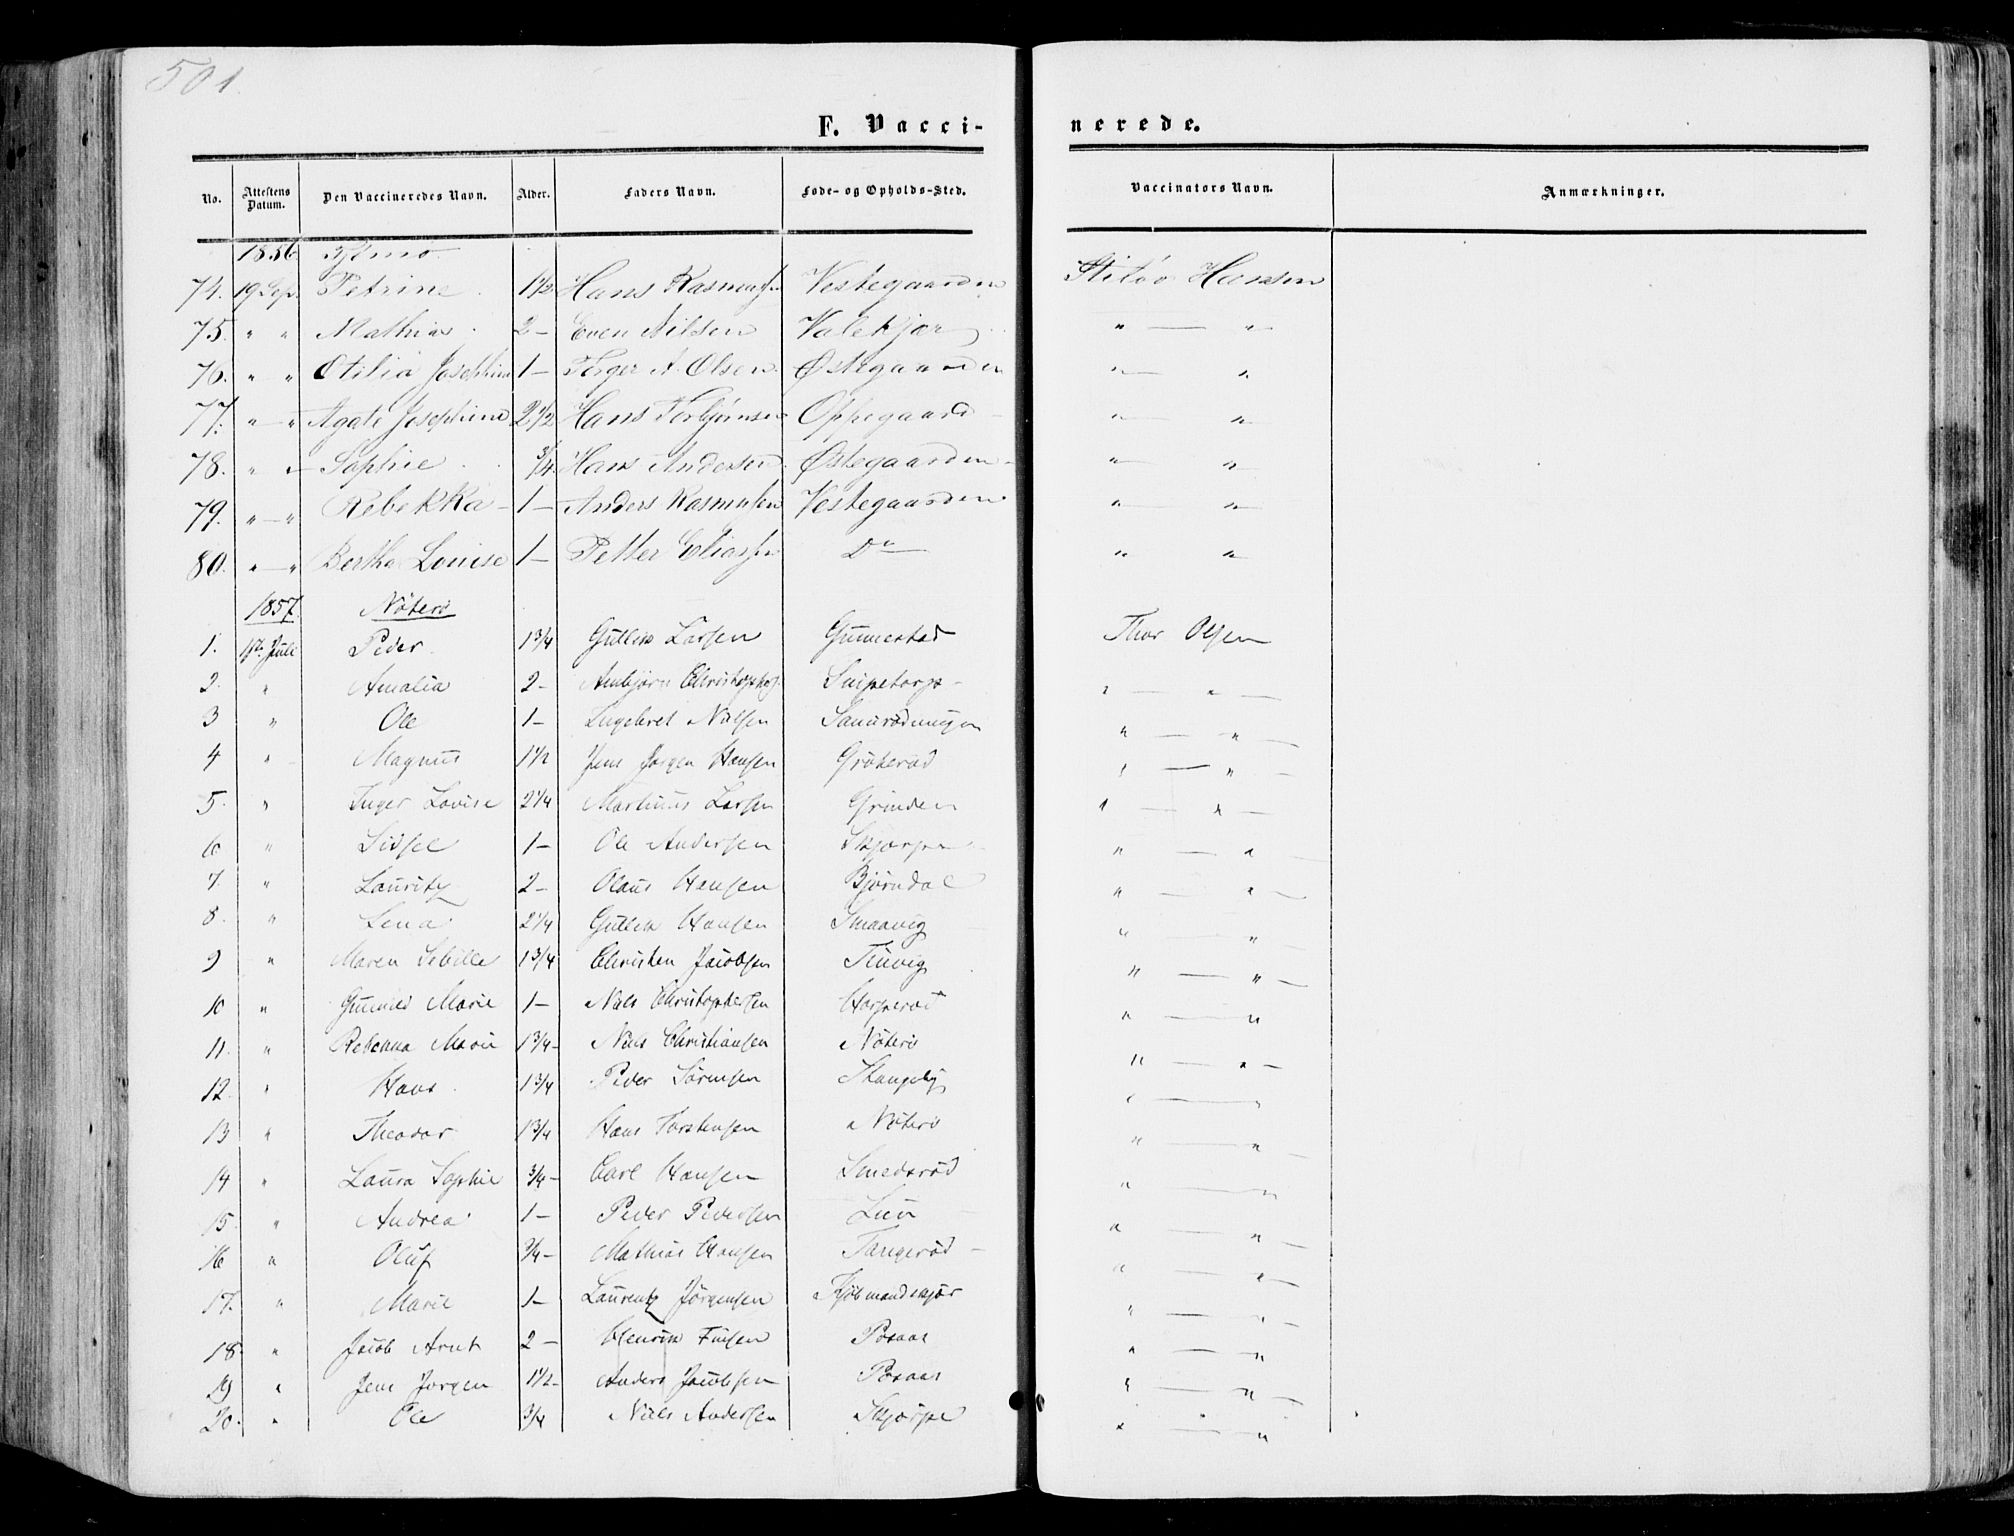 501.
F. Vacci- nerede.
No. Attestens Datum. Den Vaccineredes Navn. Alder. Faders Navn. Føde- og Opholds-Sted. Vaccinators Navn. Anmærkninger.
1856
74. 19 Sep. Petrine 1½ Hans Rasmussen Vestegaarden Hansen
75. " " Mathias 2 - Even Nilsen Valekjær " — "
76. " - " Otilia Josephine 1 - Torger A. Olsen Østegaarden " "
77. " - " Agate Josephine 2½ Hans Torbjørnsen Oppegaard - " "
78. " - " Sophie 3/4 Hans Andersen Østegaarden - " "
79. " - " Rebekka - 1 - Anders Rasmussen Vestegaarden " "
80. " - " Bertha Louise 1 - Petter Eliassen Do — " "
1857. Nøterø
1. 1ste Juli Peder 1 3/4 Gullik Larsen Gunnestad Thor Olsen
2. " Amalia 2 - Anbjørn Christophers. Snipetorp - " — " —
3 " Ole 1 - Ingebret Nilsen " — " —
4 " Magnus 1½ Jens Jørgen Hansen Grøterød " — " —
5. " Inger Lovise 2 1/4 Martinus Larsen Grinden " — " —
6 " Sissel 1 - Ole Andersen Skjærpe " — " —
7. " Lauritz 2 - Olaus Hansen Bjørndal " — " —
8. " Lena 2 1/4 Gullik Hansen Smaavig " — " —
9 " Maren Sibille 1 3/4 Christen Jacobsen Tinvig " — " —
10 " Gunnild Marie 1 - Niels Christophersen Horperød " — "
11. " Rebekka Marie 1 3/4 - Niels Christiansen Nøterø " — " —
12. " Hans 1 3/4 Peder Sørensen Skangeby " — "
13 " Theodor 1 3/4 Hans Torstensen " Nøterø " — " —
14 " Laura Sophie 3/4 - Carl Hansen Smedsrød " — "
15. " Andrea 1 - Peder Pedersen Lun " — " —
16 " Oluf 3/4 - Mathias Hansen Tangerød - " — " —
17. " Marie 1 - Laurentz Jørgensen Kjøbmandskjær " — " —
18 " Jacob Arnt 2 - Henrik Finsen Buaas " — "
19 " Jens Jørgen 1½ - Anders Jacobsen Buaas " — " —
20. " Ole 3/4 Niels Andersen Skjærpe " — "